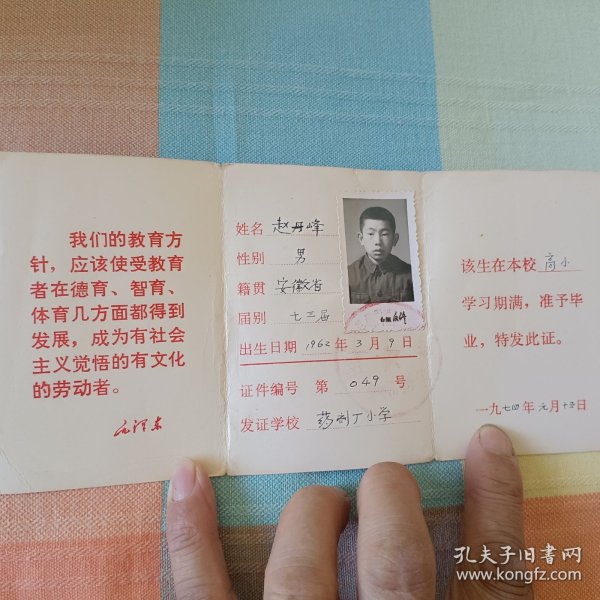 我们的教育方
针，应该使受教育
者在德育、智育、
体育几方面都得到
发展，成为有社会
主义觉悟的有文化
的劳动者。
毛泽东
姓名 赵丹峰
性别 男
籍贯 安徽省
届别 七三届
出生日期 1962 年 3 月 9 日
证件编号 第 049 号
发证学校 药剂丁小学
该生在本校 高小
学习期满，准予毕
业，特发此证。
一九七四年元月十五日
孔夫子旧书网
www.kongfz.com